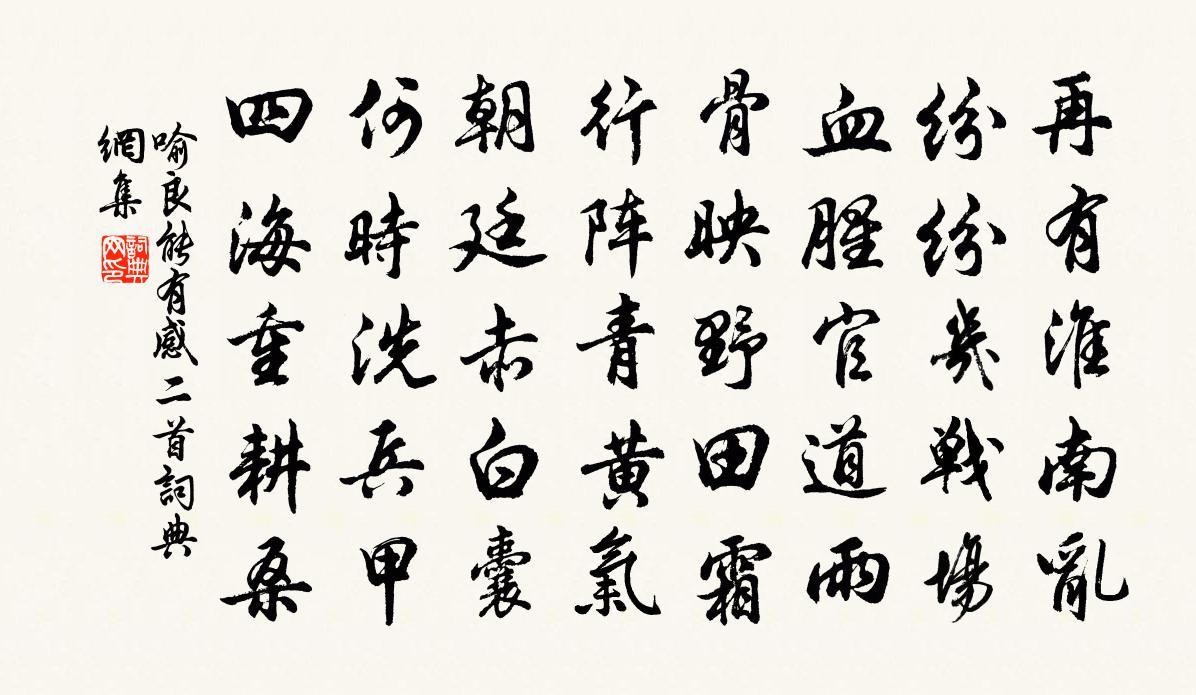 再有淮南亂
紛紛幾戰場
血腥官道雨
骨映野田霜
行阵青黄氣
朝廷赤白囊
何時洗兵甲
四海重耕桑
喻良能有感二首詞典
網集
詞典网印